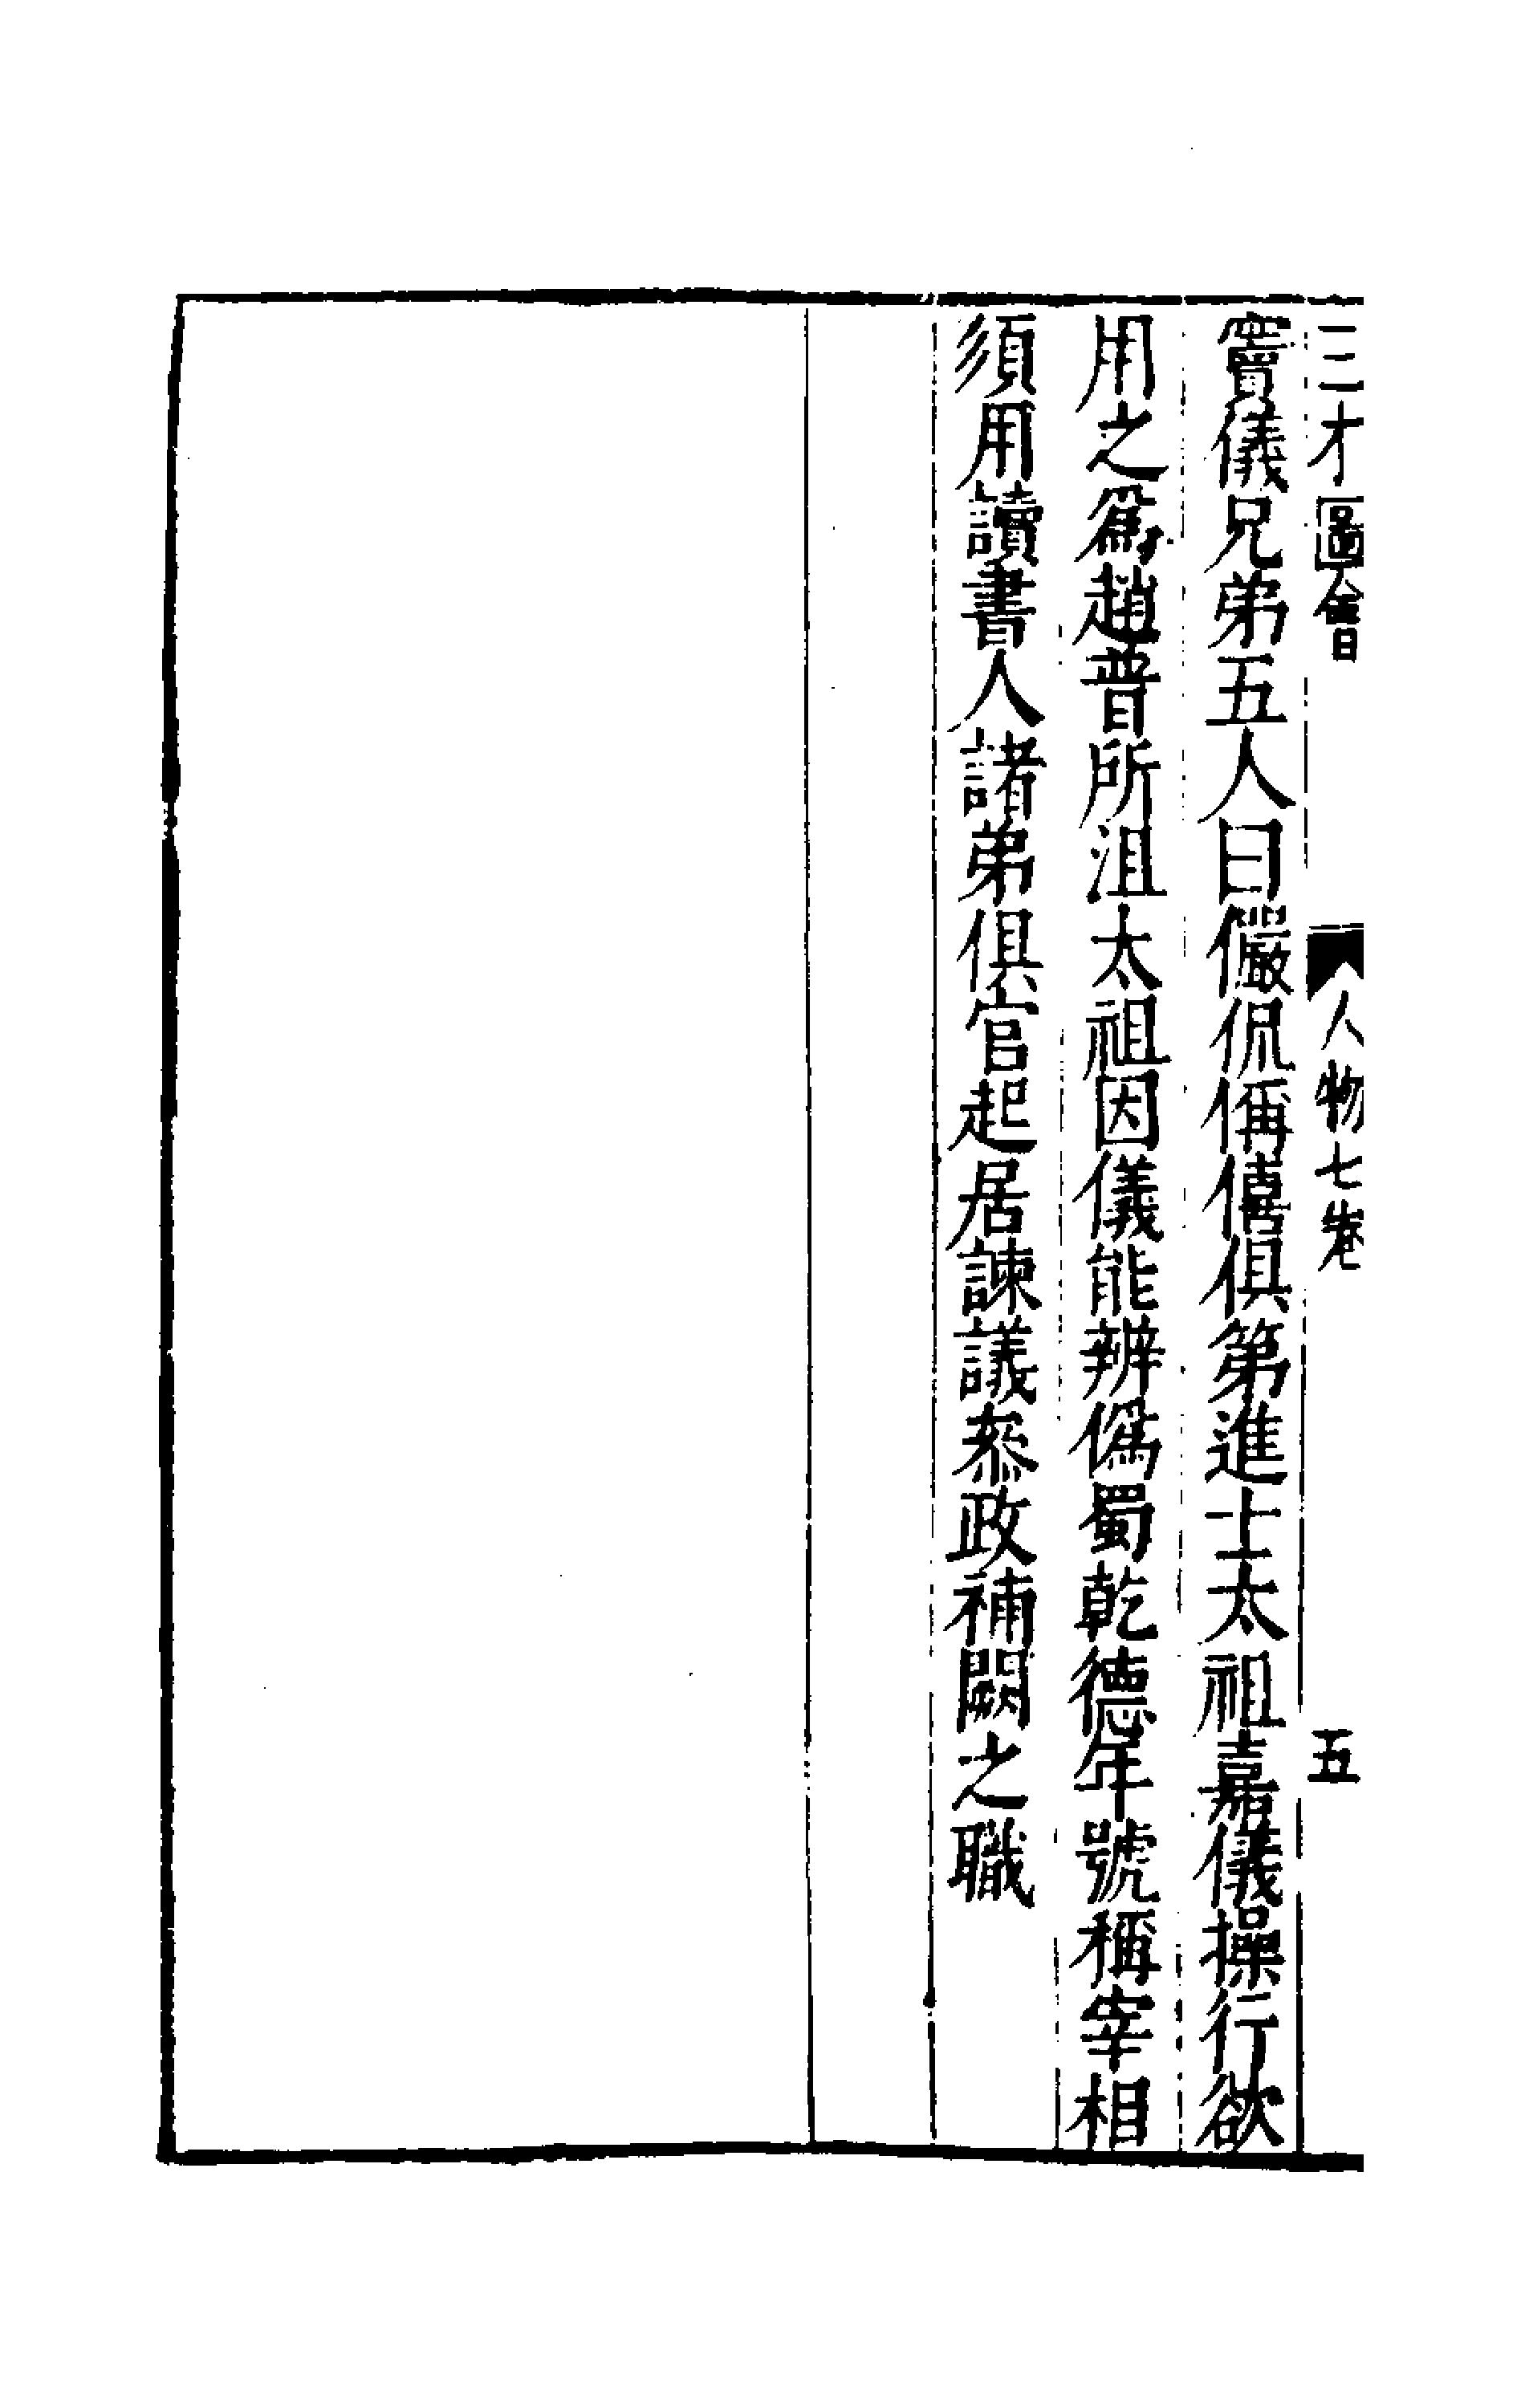 三才圖會 人物七卷 五
竇儀兄弟五人曰儼侃偁僖俱第進士太祖嘉儀操行欲
用之爲趙普所沮太祖因儀能辨僞蜀乾德年號稱宰相
須用讀書人諸弟俱官起居諫議叅政補闕之職